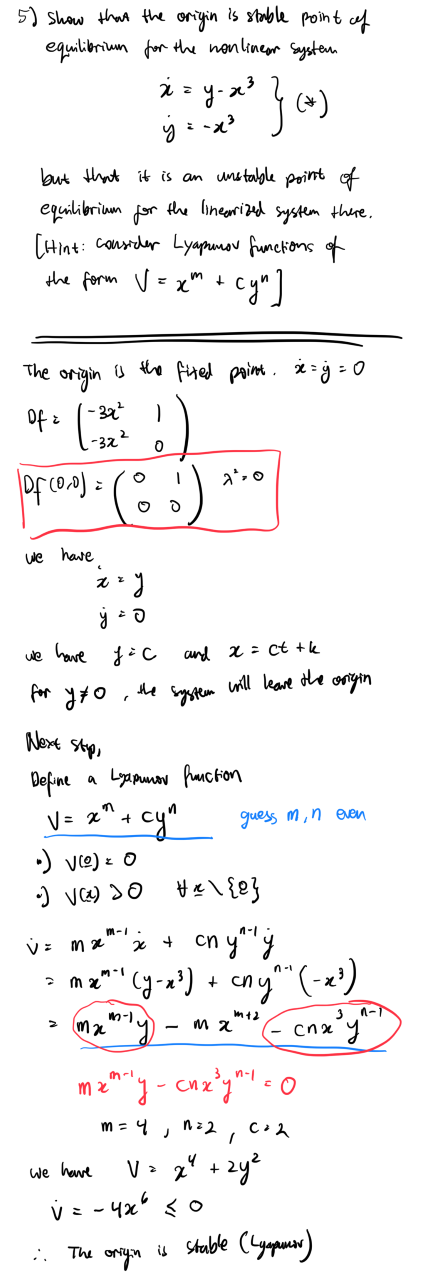 5) Show that the origin is stable point of
equilibrium for the nonlinear system
ẋ = y - x³
ẏ = -x³ } (*)
but that it is an unstable point of
equilibrium for the linearized system there.
[Hint: consider Lyapunov functions of
the form V = x^m + cy^n]
The origin is the fixed point. ẋ = ẏ = 0
Df = ( -3x² 1
-3x² 0 )
Df(0,0) = ( 0 1
0 0 ) λ² = 0
we have
ẋ = y
ẏ = 0
we have y = c and x = ct + k
for y ≠ 0, the system will leave the origin
Next step,
Define a Lyapunov function
V = x^m + cy^n guess m, n even
•) V(0) = 0
•) V(x) > 0 ∀ x \ {0}
V̇ = m x^{m-1} ẋ + cn y^{n-1} ẏ
= m x^{m-1} (y - x³) + cn y^{n-1} (-x³)
= m x^{m-1} y - m x^{m+2} - cn x³ y^{n-1}
m x^{m-1} y - cn x³ y^{n-1} = 0
m = 4, n = 2, c = 2
we have V = x⁴ + 2y²
V̇ = -4x⁶ ≤ 0
∴ The origin is stable (Lyapunov)